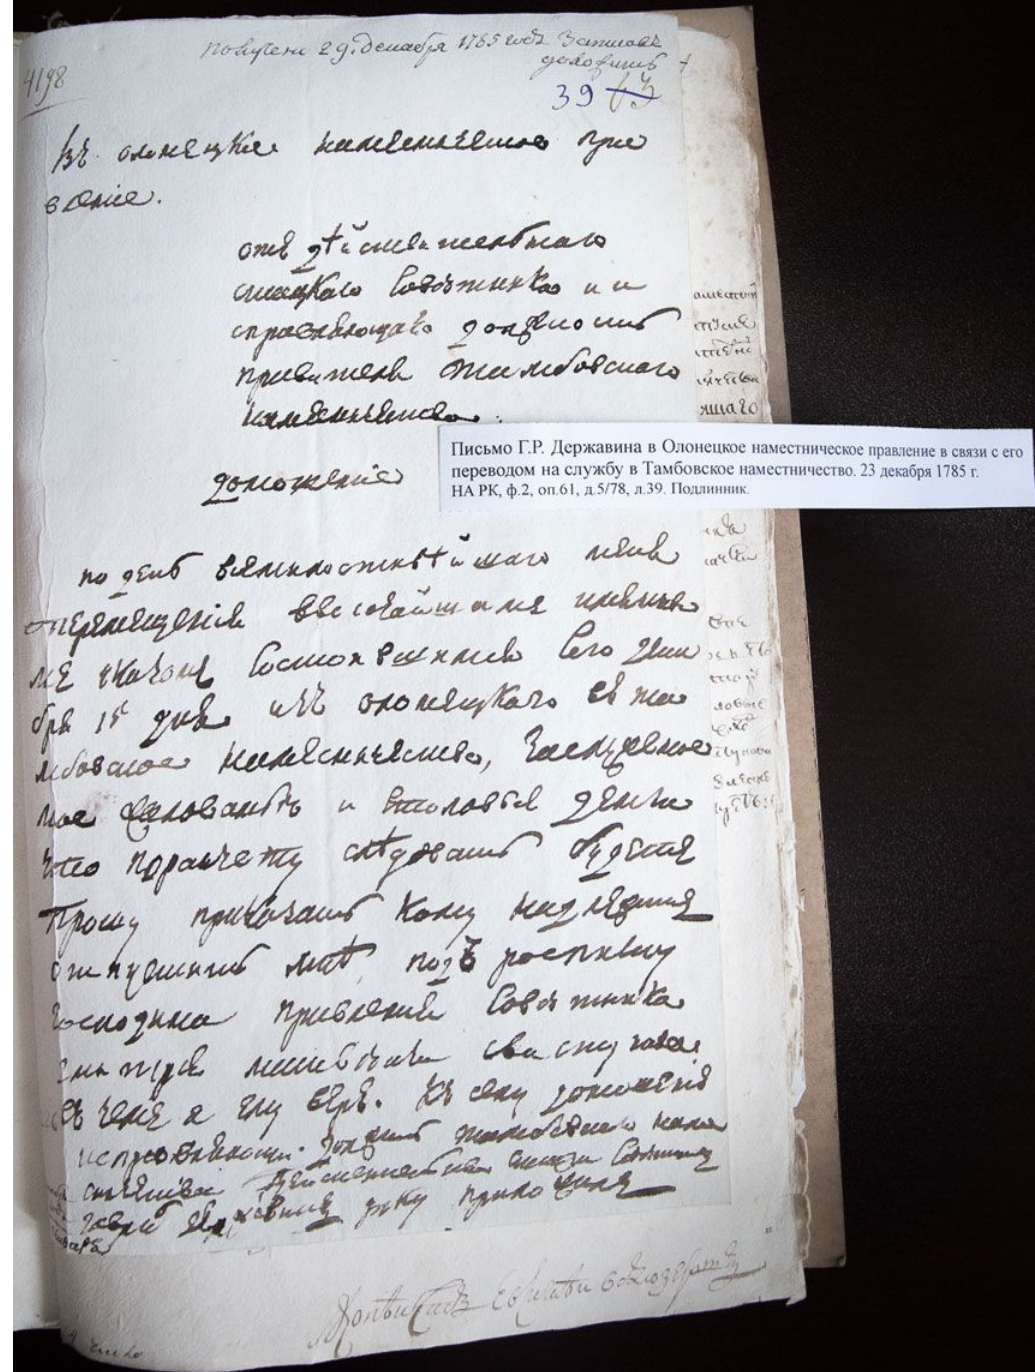 получено 29. декабря 1785 года Записавъ
доложить
4198
39 63
Въ олонецкое наместническое пра
вление.
отъ дѣйствительнаго
статскаго Совѣтника и и
справляющаго должность
правителя тамбовскаго
наместничества.
доношение
Письмо Г.Р. Державина в Олонецкое наместническое правление в связи с его
переводом на службу в Тамбовское наместничество. 23 декабря 1785 г.
НА РК, ф.2, оп.61, д.5/78, л.39. Подлинник.
по день всемилостивѣйшаго меня
перемещения высочайшимъ имянны
мъ указомъ состоявшимся сего дека
бря 15 дня изъ олонецкаго въ та
мбовское наместничество, заслуженое
мое жалованье и столовыя деньги
что поращету слѣдовать будетъ
прошу приказать кому надлежитъ
отпустить мнѣ подъ росписку
господина правления Совѣтника
въ чемъ я ему верю. Къ сему доношению
исправляющи должность тамбовскаго наме
действительны статски Советникъ
гаврила державинъ руку приложилъ